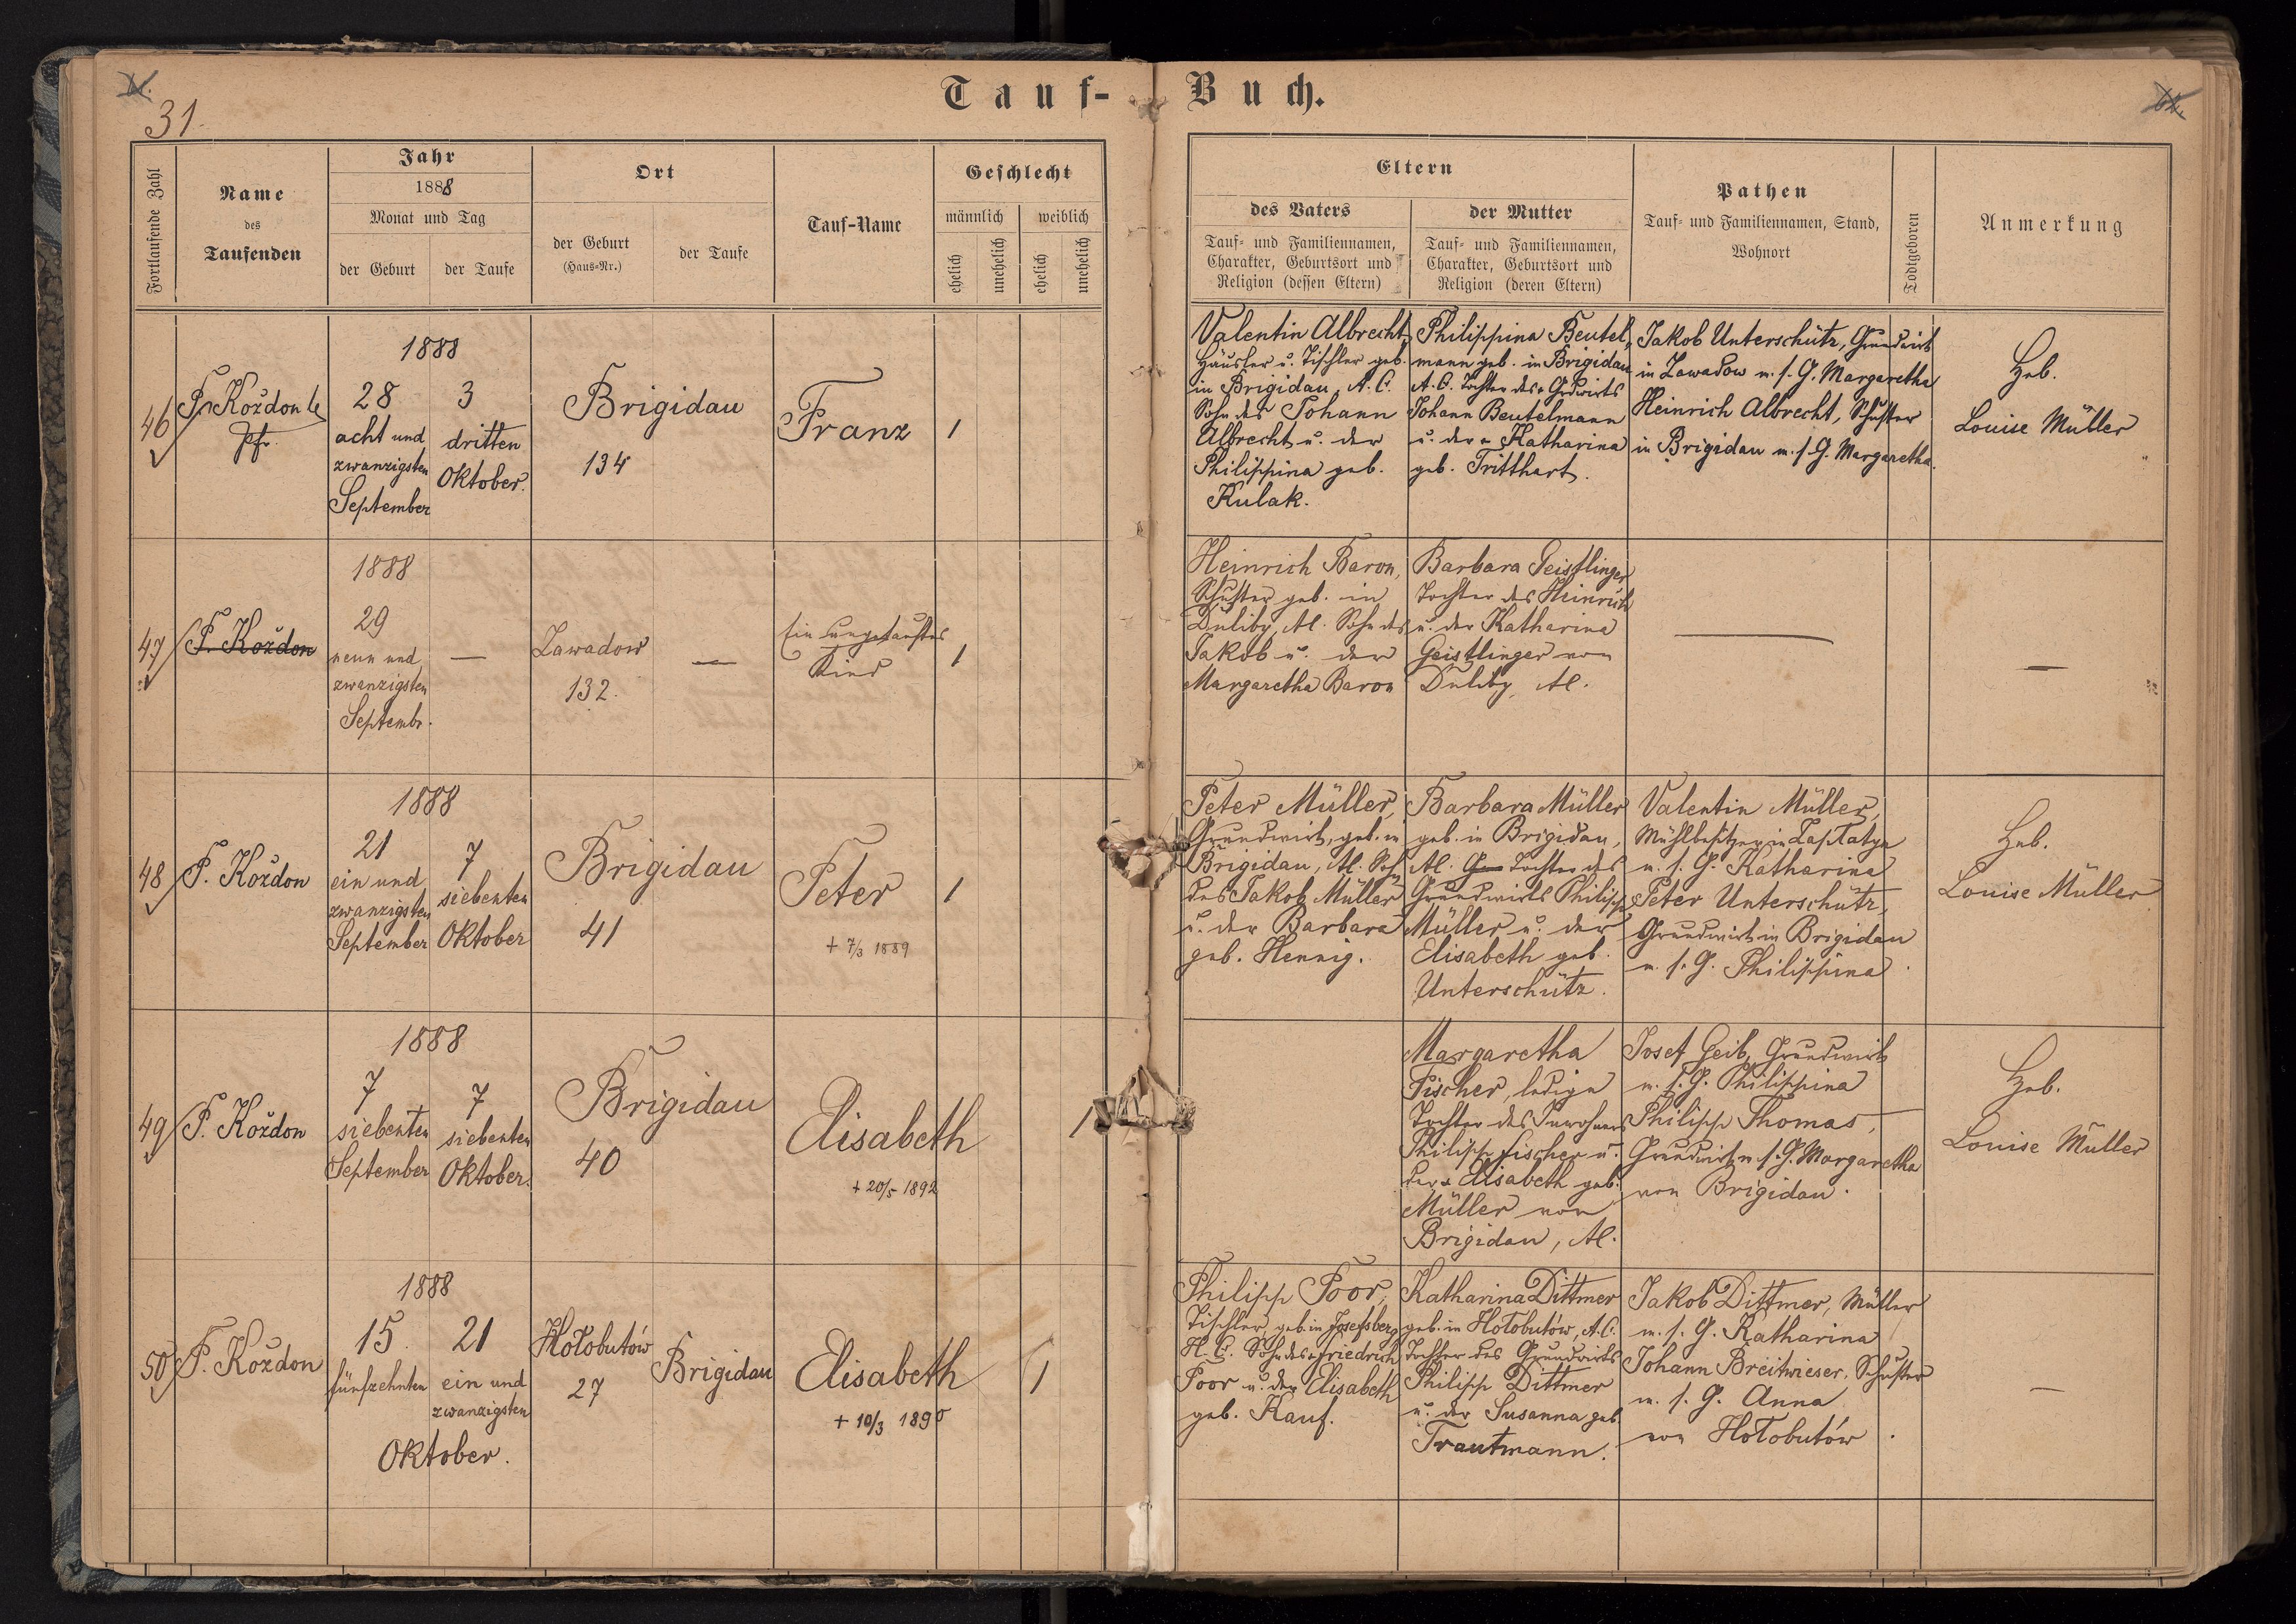 Tauf-Buch.
31.
Fortlaufende Zahl
Name
des
Taufenden
Jahr
1888
Monat und Tag
der Geburt
der Taufe
Ort
der Geburt
(Haus-Nr.)
der Taufe
Tauf-Name
Geschlecht
männlich
weiblich
ehelich
unehelich
ehelich
unehelich
Eltern
des Vaters
Tauf- und Familiennamen,
Charakter, Geburtsort und
Religion (dessen Eltern)
der Mutter
Tauf- und Familiennamen,
Charakter, Geburtsort und
Religion (deren Eltern)
Pathen
Tauf- und Familiennamen, Stand,
Wohnort
Todtgeboren
Anmerkung
46
Koždon
Pfr.
1888
28
acht und
zwanzigsten
September
3
dritten
Oktober.
Brigidau
134
Franz
1
Valentin Albrecht,
Häusler u. Tischler geb.
in Brigidau, A. C.
Sohn des Johann
Albrecht u. der
Philippina geb.
Kulak.
Philippina Beutel-
mann geb. in Brigidau
A. C. Tochter des + Grdwirts
Johann Beutelmann
u. der + Katharina
geb. Tritthart.
Jakob Unterschütz, Grundwirt
in Zawadow m. s. G. Margaretha
Heinrich Albrecht, Schuster
in Brigidau m. s. G. Margaretha.
Heb.
Louise Müller
47
P. Koždon
1888
29
neun und
zwanzigsten
Septembr.
—
Zawadow
132.
—
Ein ungetauftes
Kind
1
Heinrich Baron,
Schuster geb. in
Duliby, AC. Sohn des
Jakob u. der
Margaretha Baron
Barbara Geistlinger
Tochter des Heinrich
u. der Katharina
Geistlinger von
Duliby, AC.
—
—
48
P. Koždon
1888
21
ein und
zwanzigsten
September
7
siebenten
Oktober
Brigidau
41
Peter
+ 7/3 1889
1
Peter Müller,
Grundwirt, geb. in
Brigidau, AC. Sohn
des Jakob Müller
u. der Barbara
geb. Hennig.
Barbara Müller
geb. in Brigidau,
AC. Tochter des
Grundwirts Philipp
Müller u. der
Elisabeth geb.
Unterschütz.
Valentin Müller,
Mühlbesitzer in
m. s. G. Katharina
Peter Unterschütz,
Grundwirt in Brigidau
m. s. G. Philippina.
Heb.
Louise Müller
49
P. Koždon
1888
7
siebenten
September
7
siebenten
Oktober.
Brigidau
40
Elisabeth
+ 20/5 1892
1
Margaretha
Fischer, ledige
Tochter des Inwohners
Philipp Fischer u.
der + Elisabeth geb.
Müller von
Brigidau, AC.
Josef Geib, Grundwirt
m. s. G. Philippina
Philipp Thomas,
Grundwirt m. s. G. Margaretha
von Brigidau.
Heb.
Louise Müller
50
P. Koždon
1888
15.
fünfzehnten
21
ein und
zwanzigsten
Oktober.
Hołobutów
27
Brigidau
Elisabeth
+ 10/3 1890
1
Philipp Poor,
Tischler geb. in Josefsberg
H. C. Sohn des + Friedrich
Poor u. der Elisabeth
geb. Kauf.
Katharina Dittmer
geb. in Hołobutów, A. C.
Tochter des Grundwirts
Philipp Dittmer
u. der Susanna geb.
Trautmann.
Jakob Dittmer, Müller
m. s. G. Katharina
Johann Breitwieser, Schuster
m. s. G. Anna
von Hołobutów.
—